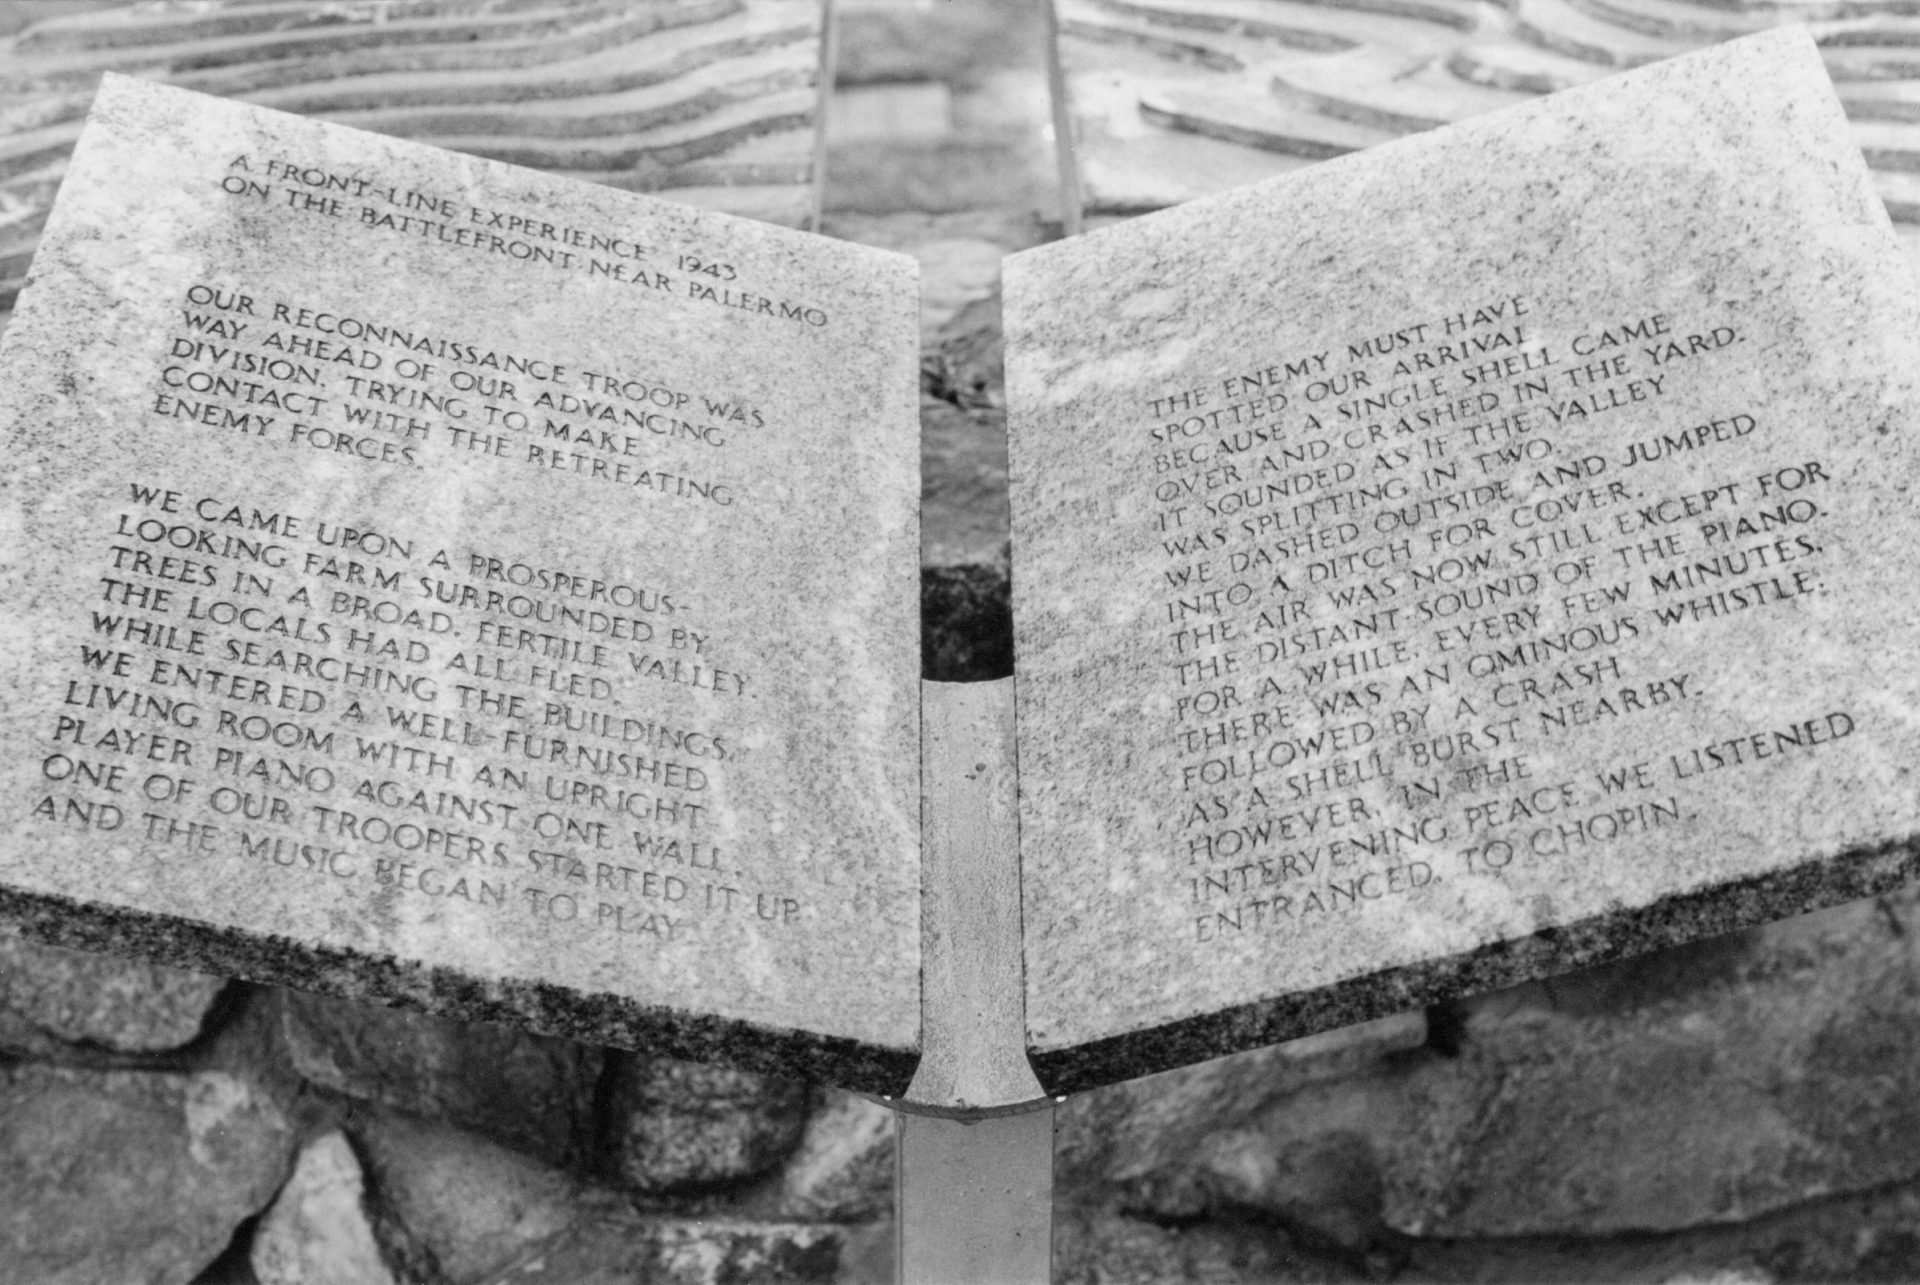 A FRONT-LINE EXPERIENCE 1943
ON THE BATTLEFRONT NEAR PALERMO
OUR RECONNAISSANCE TROOP WAS
WAY AHEAD OF OUR ADVANCING
DIVISION, TRYING TO MAKE
CONTACT WITH THE RETREATING
ENEMY FORCES.
WE CAME UPON A PROSPEROUS-
LOOKING FARM SURROUNDED BY
TREES IN A BROAD, FERTILE VALLEY.
THE LOCALS HAD ALL FLED.
WHILE SEARCHING THE BUILDINGS,
WE ENTERED A WELL-FURNISHED
LIVING ROOM WITH AN UPRIGHT
PLAYER PIANO AGAINST ONE WALL.
ONE OF OUR TROOPERS STARTED IT UP
AND THE MUSIC BEGAN TO PLAY
THE ENEMY MUST HAVE
SPOTTED OUR ARRIVAL
BECAUSE A SINGLE SHELL CAME
OVER AND CRASHED IN THE YARD.
IT SOUNDED AS IF THE VALLEY
WAS SPLITTING IN TWO.
WE DASHED OUTSIDE AND JUMPED
INTO A DITCH FOR COVER.
THE AIR WAS NOW STILL EXCEPT FOR
THE DISTANT SOUND OF THE PIANO.
FOR A WHILE, EVERY FEW MINUTES,
THERE WAS AN OMINOUS WHISTLE,
FOLLOWED BY A CRASH
AS A SHELL BURST NEARBY.
HOWEVER, IN THE
INTERVENING PEACE WE LISTENED
ENTRANCED, TO CHOPIN.